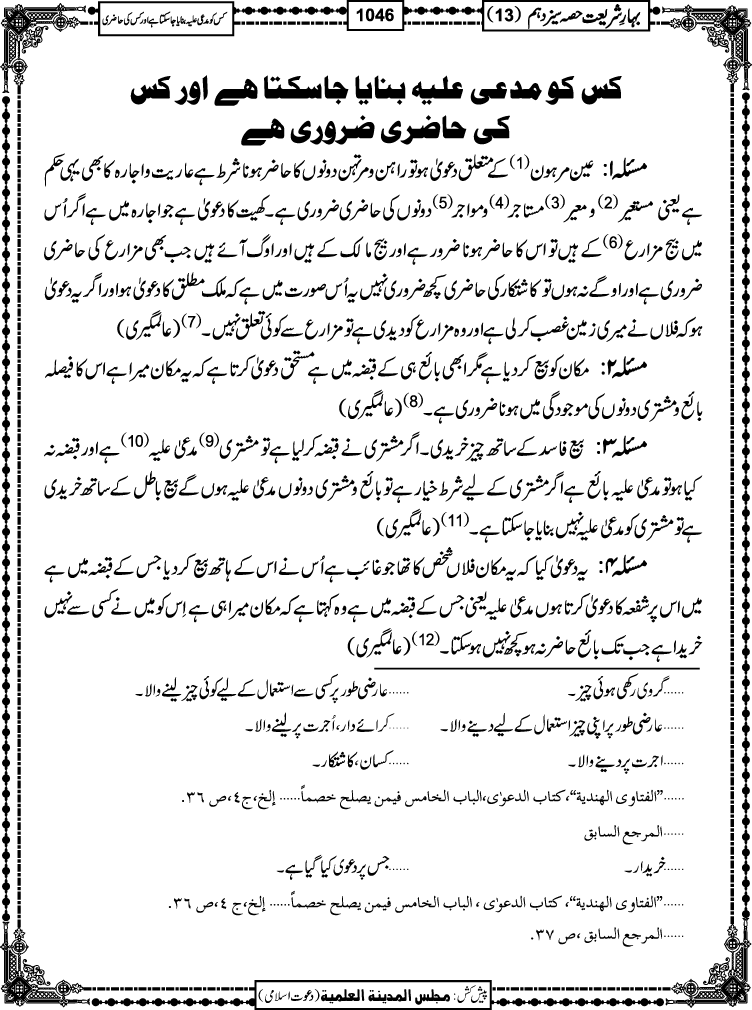 بہارِ شریعت حصہ سیزدہم (13)
1046
کس کو مدعیٰ علیہ بنایا جاسکتا ہے اور کس کی حاضری
کس کو مدعی علیہ بنایا جاسکتا ہے اور کس
کی حاضری ضروری ہے
مسئلہ ۱: عین مرہون (1) کے متعلق دعویٰ ہو تو راہن و مرتہن دونوں کا حاضر ہونا شرط ہے عاریت و اجارہ کا بھی یہی حکم
ہے یعنی مستعیر (2) و معیر (3) مستاجر (4) و مواجر (5) دونوں کی حاضری ضروری ہے۔ کھیت کا دعویٰ ہے جو اجارہ میں ہے اگر اُس
میں بیج مزارع (6) کے ہیں تو اس کا حاضر ہونا ضرور ہے اور بیج مالک کے ہیں اور اوگ آئے ہیں جب بھی مزارع کی حاضری
ضروری ہے اور اوگے نہ ہوں تو کاشتکار کی حاضری کچھ ضروری نہیں یہ اُس صورت میں ہے کہ ملک مطلق کا دعویٰ ہو اور اگر یہ دعویٰ
ہو کہ فلاں نے میری زمین غصب کرلی ہے اور وہ مزارع کو دیدی ہے تو مزارع سے کوئی تعلق نہیں۔ (7) (عالمگیری)
مسئلہ ۲: مکان کو بیع کردیا ہے مگر ابھی بائع ہی کے قبضہ میں ہے مستحق دعویٰ کرتا ہے کہ یہ مکان میرا ہے اس کا فیصلہ
بائع و مشتری دونوں کی موجودگی میں ہونا ضروری ہے۔ (8) (عالمگیری)
مسئلہ ۳: بیع فاسد کے ساتھ چیز خریدی۔ اگر مشتری نے قبضہ کرلیا ہے تو مشتری (9) مدعیٰ علیہ (10) ہے اور قبضہ نہ
کیا ہو تو مدعیٰ علیہ بائع ہے اگر مشتری کے لیے شرط خیار ہے تو بائع و مشتری دونوں مدعیٰ علیہ ہوں گے بیع باطل کے ساتھ خریدی
ہے تو مشتری کو مدعیٰ علیہ نہیں بنایا جاسکتا ہے۔ (11) (عالمگیری)
مسئلہ ۴: یہ دعویٰ کیا کہ یہ مکان فلاں شخص کا تھا جو غائب ہے اُس نے اس کے ہاتھ بیع کردیا جس کے قبضہ میں ہے
میں اس پر شفعہ کا دعویٰ کرتا ہوں مدعیٰ علیہ یعنی جس کے قبضہ میں ہے وہ کہتا ہے کہ مکان میرا ہی ہے اِس کو میں نے کسی سے نہیں
خریدا ہے جب تک بائع حاضر نہ ہو کچھ نہیں ہوسکتا۔ (12) (عالمگیری)
......گروی رکھی ہوئی چیز۔ ......عارضی طور پر کسی سے استعمال کے لیے کوئی چیز لینے والا۔
......عارضی طور پر اپنی چیز استعمال کے لیے دینے والا۔ ......کرائے دار، اُجرت پر لینے والا۔
......اجرت پر دینے والا۔ ......کسان، کاشتکار۔
......"الفتاوی الهندية"، كتاب الدعوٰی، الباب الخامس فيمن يصلح خصماً...... إلخ، ج٤، ص ٣٦.
......المرجع السابق
......خریدار۔ ......جس پر دعویٰ کیا گیا ہے۔
......"الفتاوی الهندية"، كتاب الدعوٰی ، الباب الخامس فيمن يصلح خصماً...... إلخ، ج ٤، ص ٣٦.
......المرجع السابق ، ص ٣٧.
پیش کش: مجلس المدينة العلمية (دعوتِ اسلامی)